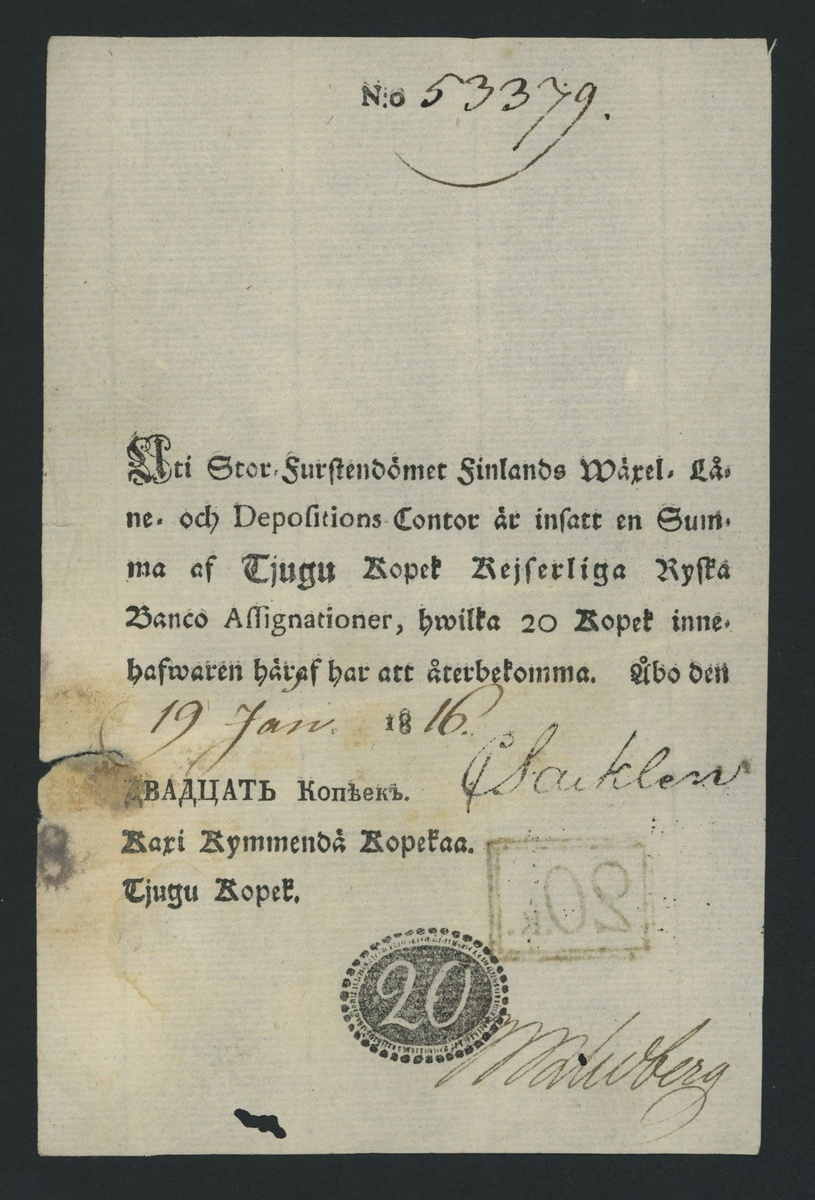 N:o 53379.
Uti Stor-Furstendömet Finlands Wäxel- Lå-
ne- och Depositions Contor är insatt en Sum-
ma af Tjugu Kopek Kejserliga Ryska
Banco Assignationer, hwilka 20 Kopek inne-
hafwaren häraf har att återbekomma. Åbo den
19 Jan. 1816.
ДВАДЦАТЬ Копѣекъ.
Kaxi Kymmendä Kopekaa.
Tjugu Kopek.
20 K.
20